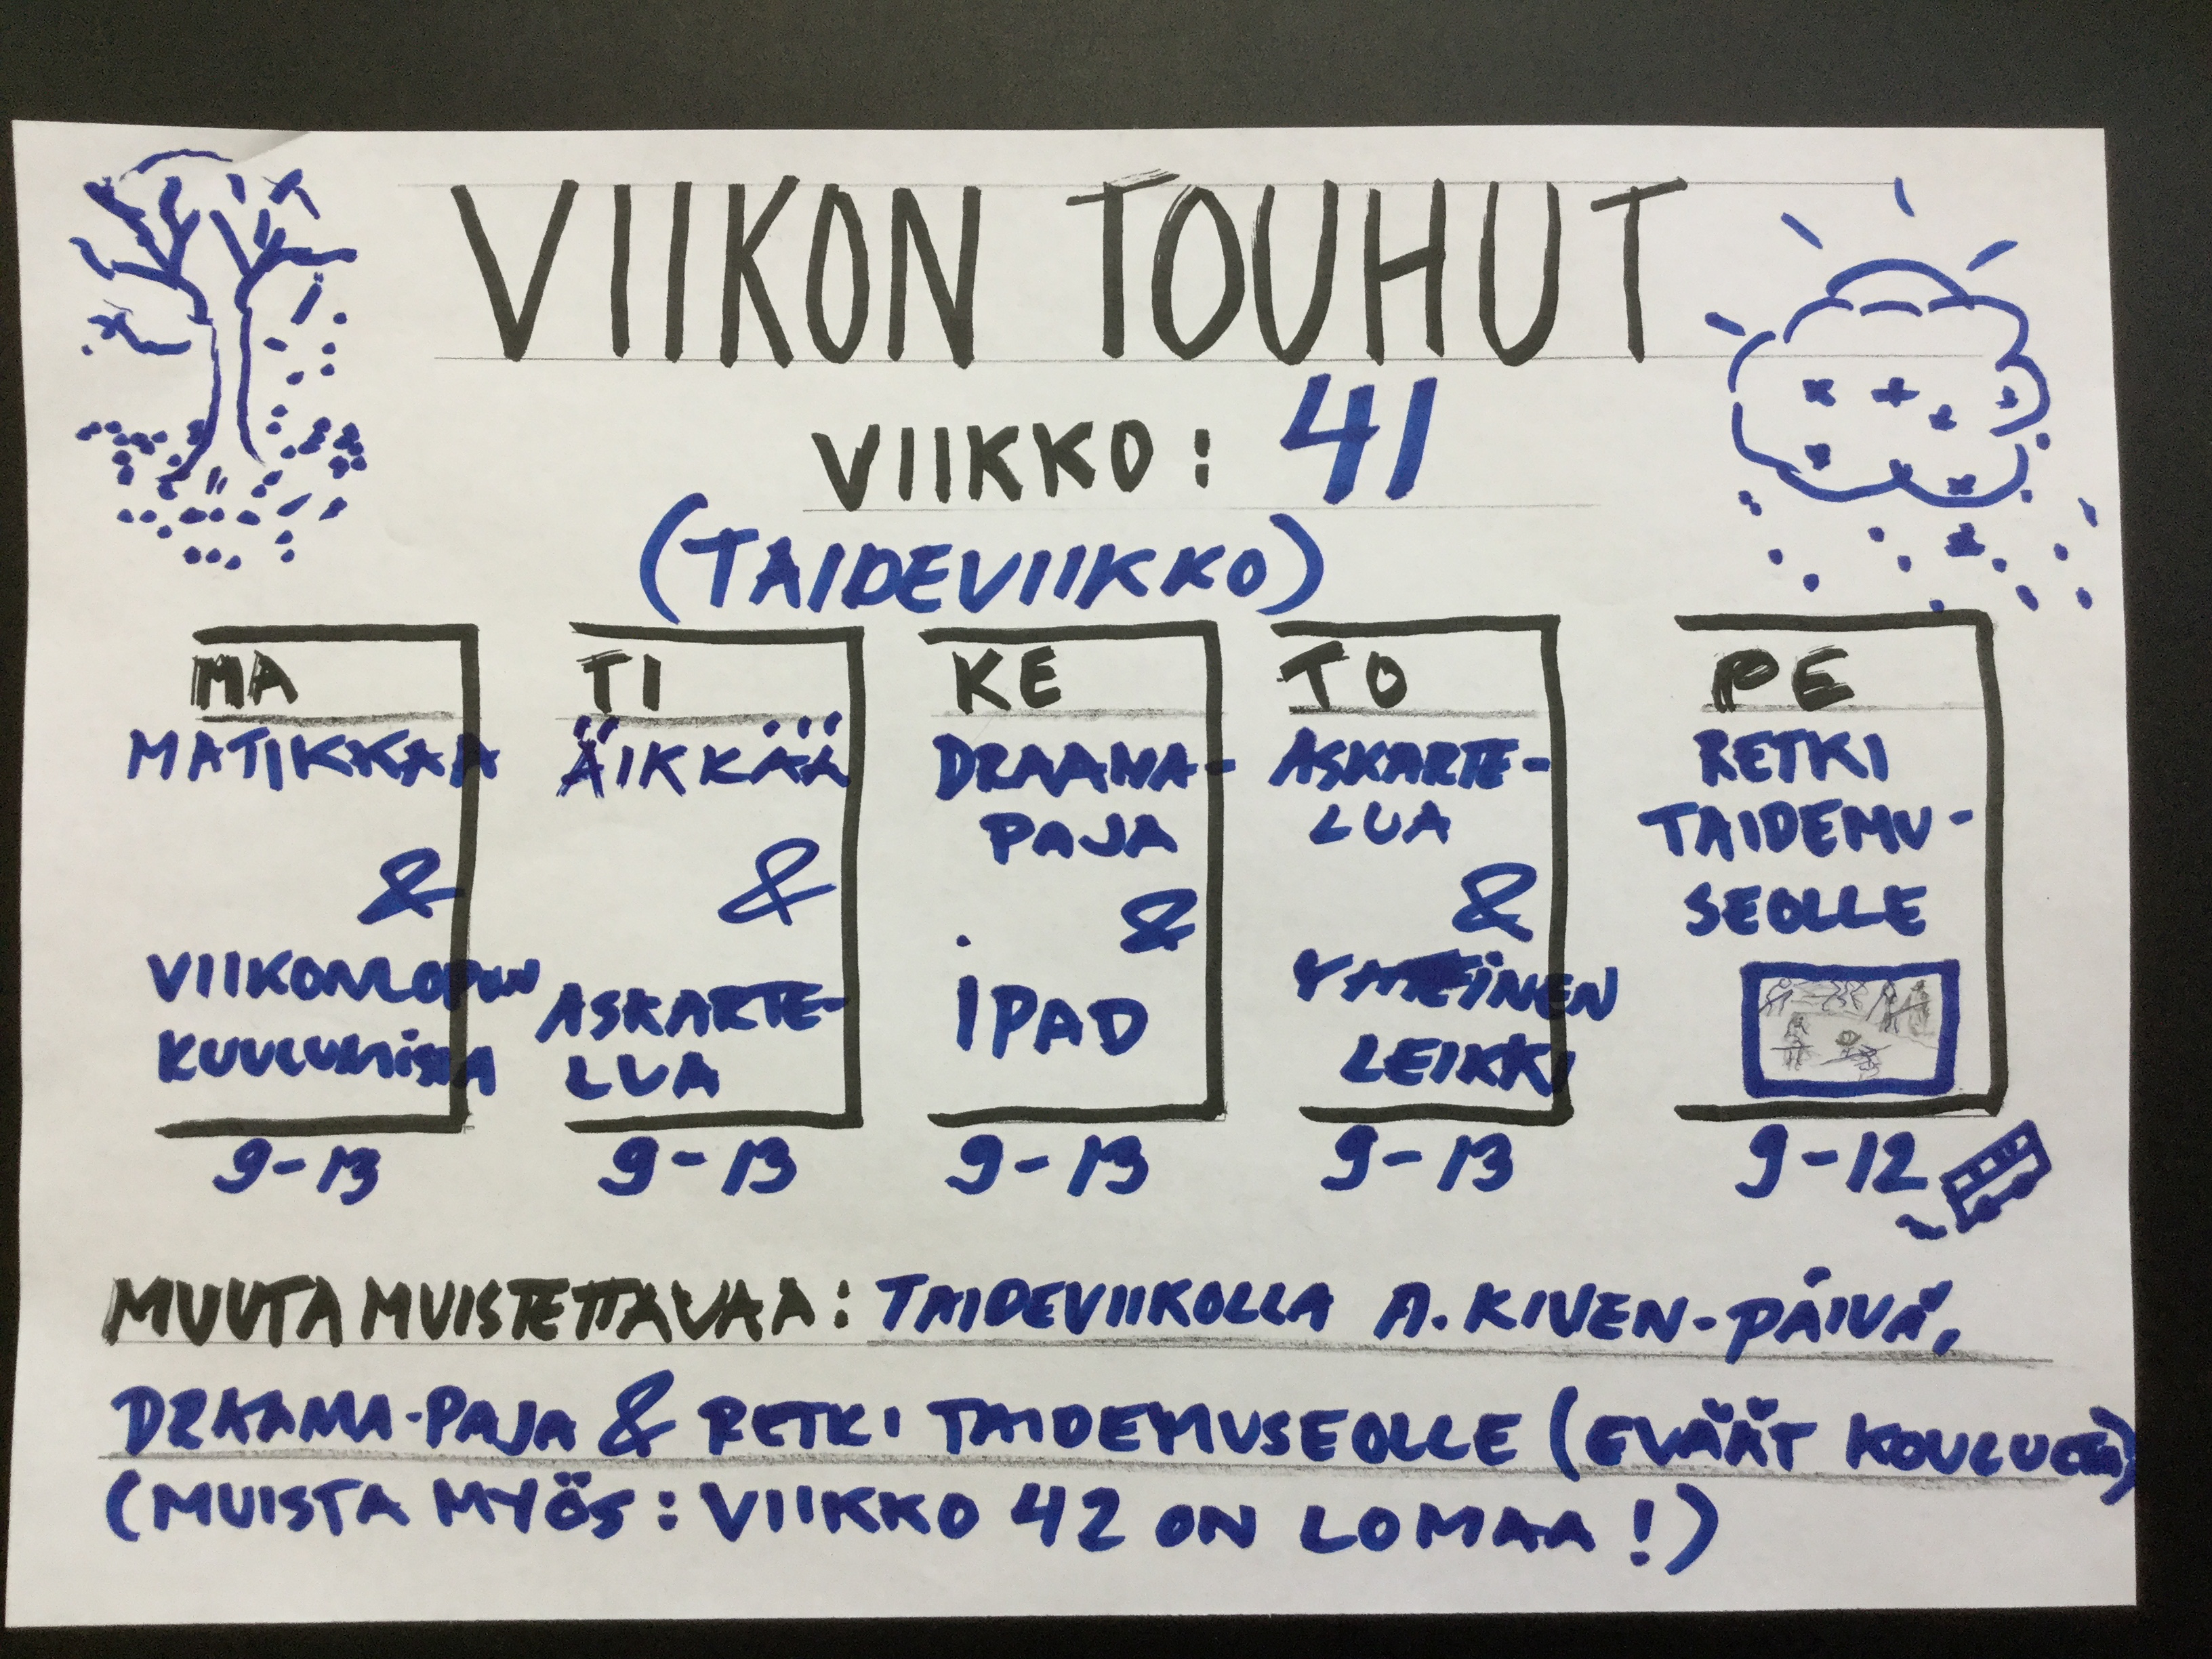 VIIKON TOUHUT
VIIKKO: 41
(TAIDEVIIKKO)
MA
MATIKKAA
&
VIIKONLOPUN
KUULUMISIA
9-13
TI
ÄIKKÄÄ
&
ASKARTE-
LUA
9-13
KE
DRAAMA-
PAJA
&
IPAD
9-13
TO
ASKARTE-
LUA
&
YHTEINEN
LEIKKI
9-13
PE
RETKI
TAIDEMU-
SEOLLE
9-12
MUUTA MUISTETTAVAA: TAIDEVIIKOLLA A. KIVEN-PÄIVÄ,
DRAAMA-PAJA & RETKI TAIDEMUSEOLLE (EVÄÄT KOULUSTA)
(MUISTA MYÖS: VIIKKO 42 ON LOMAA!)